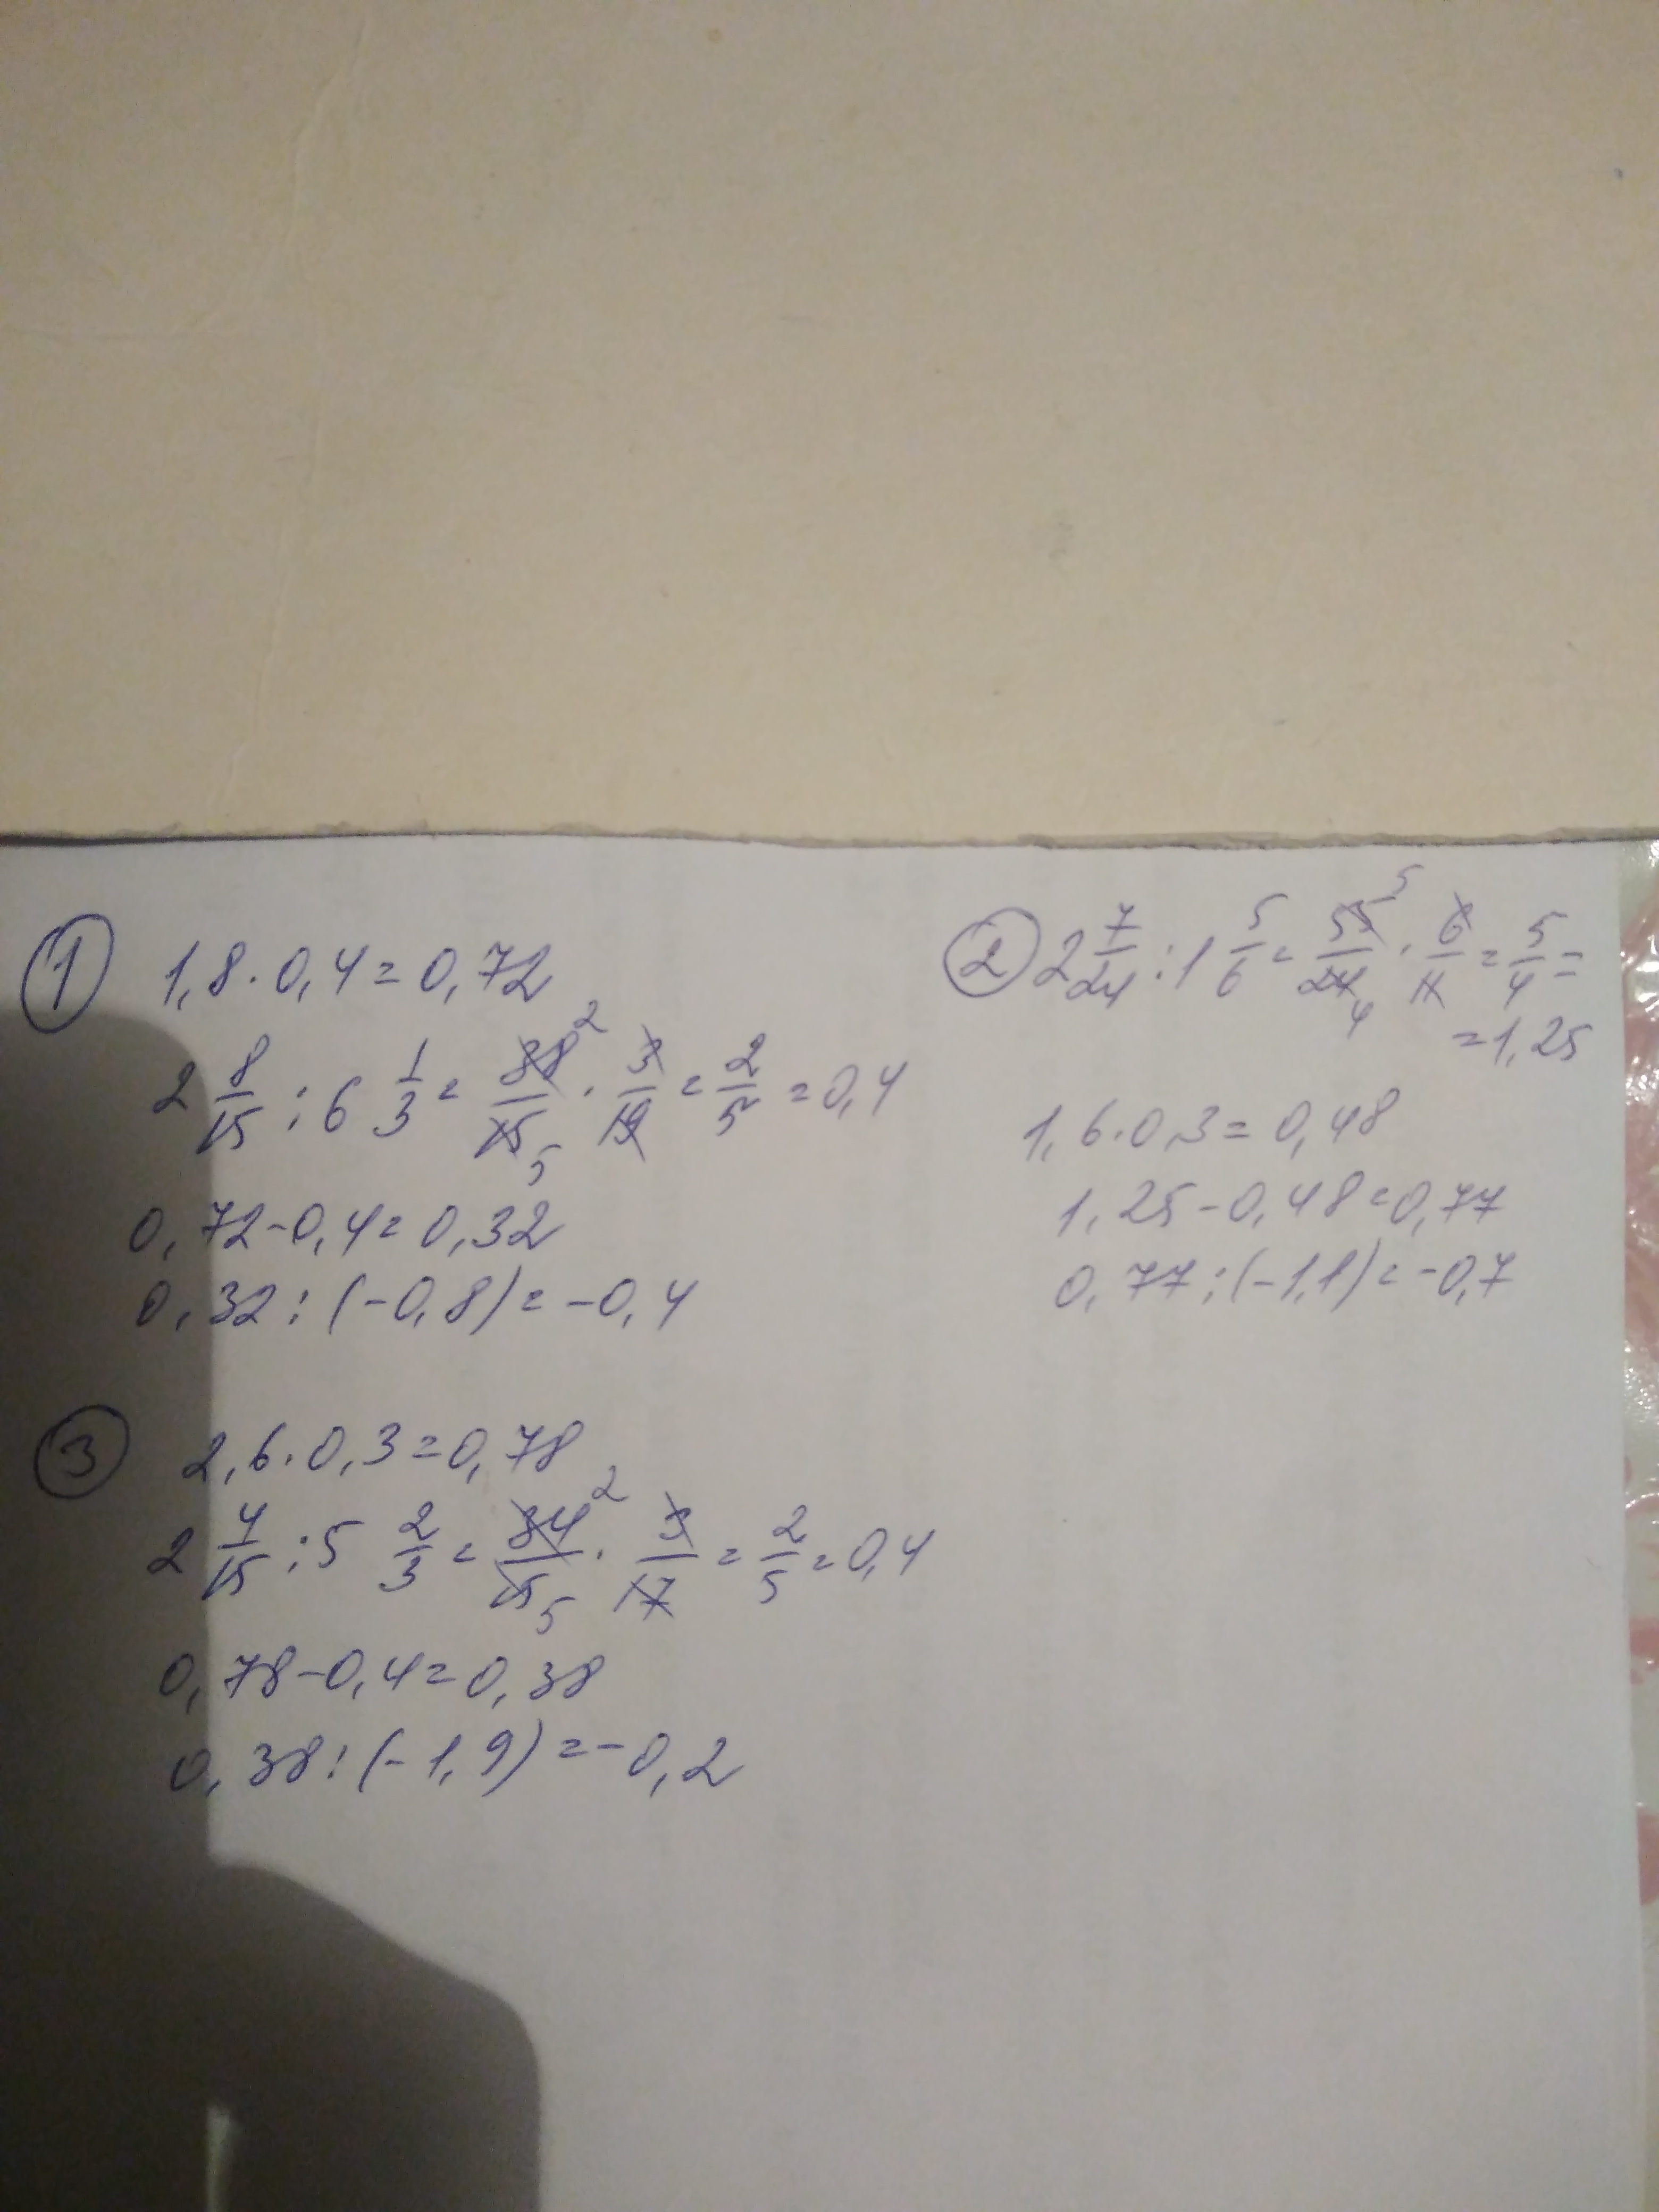 ① 1,8 · 0,4 = 0,72
2 8/15 : 6 1/3 = 38/15 · 3/19 = 2/5 = 0,4
2
5
0,72 - 0,4 = 0,32
0,32 : (-0,8) = -0,4
② 2 7/24 : 1 5/6 = 55/24 · 6/11 = 5/4 =
5
4
= 1,25
1,6 · 0,3 = 0,48
1,25 - 0,48 = 0,77
0,77 : (-1,1) = -0,7
③ 2,6 · 0,3 = 0,78
2 4/15 : 5 2/3 = 34/15 · 3/17 = 2/5 = 0,4
2
5
0,78 - 0,4 = 0,38
0,38 : (-1,9) = -0,2